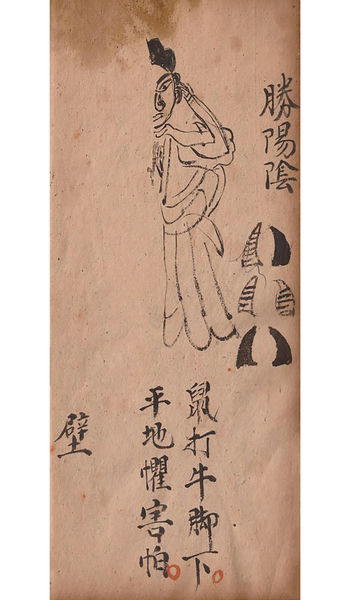 勝陽陰
鼠打牛脚下
平地懼害怕
壁